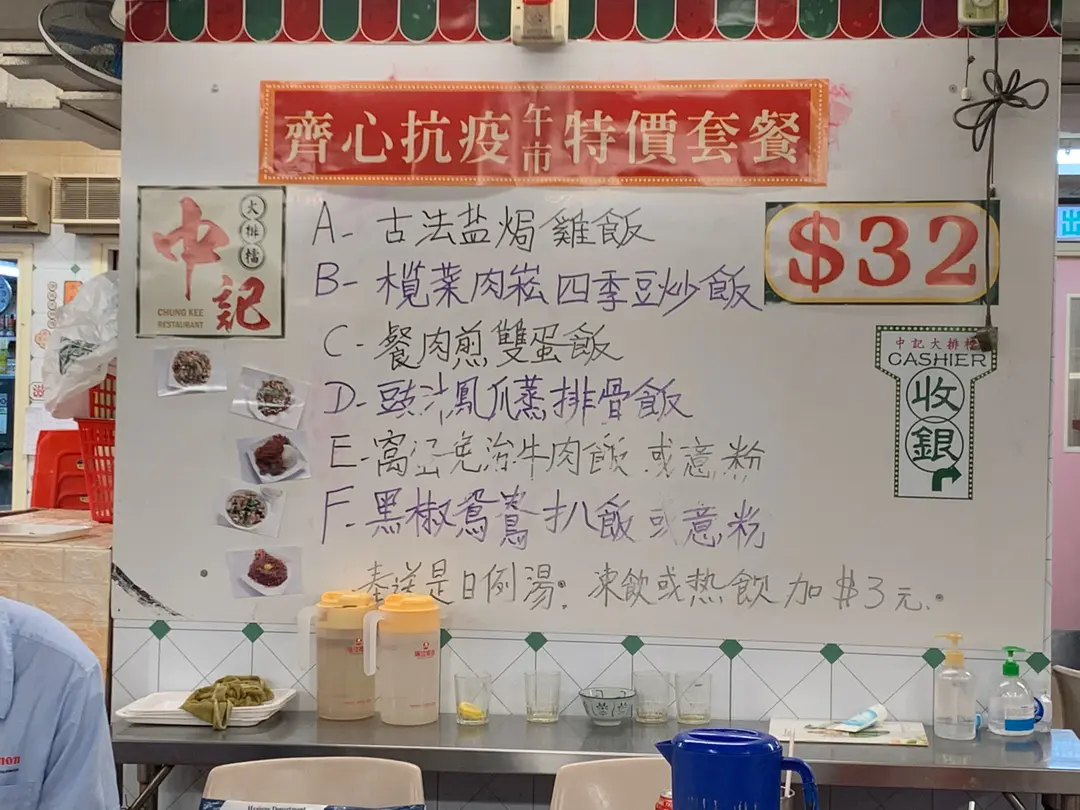 齊心抗疫午市特價套餐
大排檔
中記
CHUNG KEE
RESTAURANT
$32
A- 古法盐焗雞飯
B- 榄菜肉崧四季豆炒飯
C- 餐肉煎雙蛋飯
D- 豉汁鳳爪蒸排骨飯
E- 窩疍免治牛肉飯或意粉
F- 黑椒鴛鴦扒飯或意粉
奉送是日例湯。凍飲或热飲加$3元。
中記大排檔
CASHIER
收銀